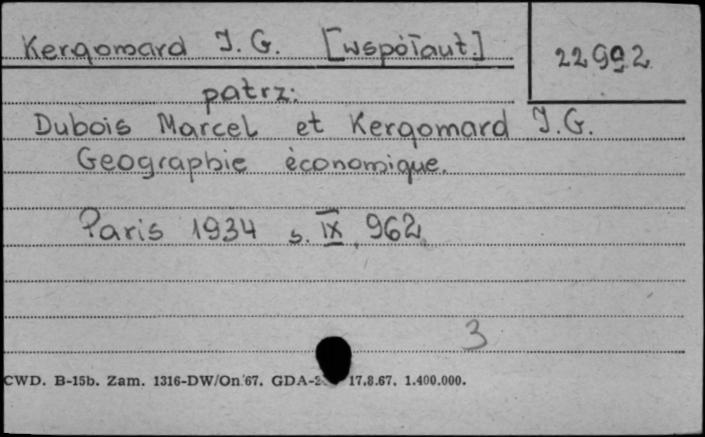 Kergomard J. G. [współaut.]
22992
patrz:
Dubois Marcel et Kergomard J.G.
Geographie économique.
Paris 1934 s. IX, 962
3
CWD. B-15b. Zam. 1316-DW/On/67. GDA- 17.8.67. 1.400.000.